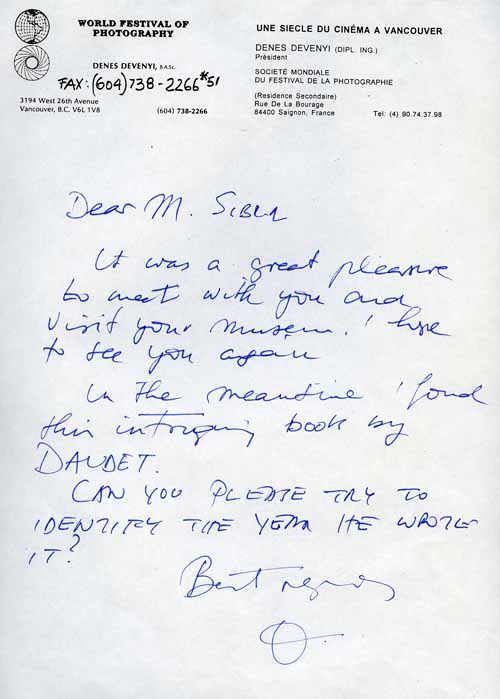 WORLD FESTIVAL OF
PHOTOGRAPHY
DENES DEVENYI, B.A.Sc.
FAX: (604) 738-2266 *51
3194 West 26th Avenue
Vancouver, B.C. V6L 1V8
(604) 738-2266
UNE SIECLE DU CINÉMA A VANCOUVER
DENES DEVENYI (DIPL. ING.)
Président
SOCIETÉ MONDIALE
DU FESTIVAL DE LA PHOTOGRAPHIE
(Residence Secondaire)
Rue De La Bourage
84400 Saignon, France
Tel: (4) 90.74.37.98
Dear M.
It was a great pleasure
to meet with you and
visit your museum. I hope
to see you again
In the meantime I found
this intriguing book by
DAUDET.
CAN YOU PLEASE TRY TO
IDENTIFY THE YEAR HE WROTE
IT?
Best regards